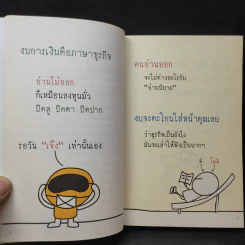 งบการเงินคือภาษาธุรกิจ
อ่านไม่ออก
ก็เหมือนลงทุนมั่ว
ปิดหู ปิดตา ปิดปาก
รอวัน "เจ๊ง" เท่านั้นเอง
คนอ่านออก
จะไม่ต่างอะไรกับ
"อ่านนิยาย"
งบจะตะโกนใส่หน้าคุณเลย
ว่าธุรกิจเป็นยังไง